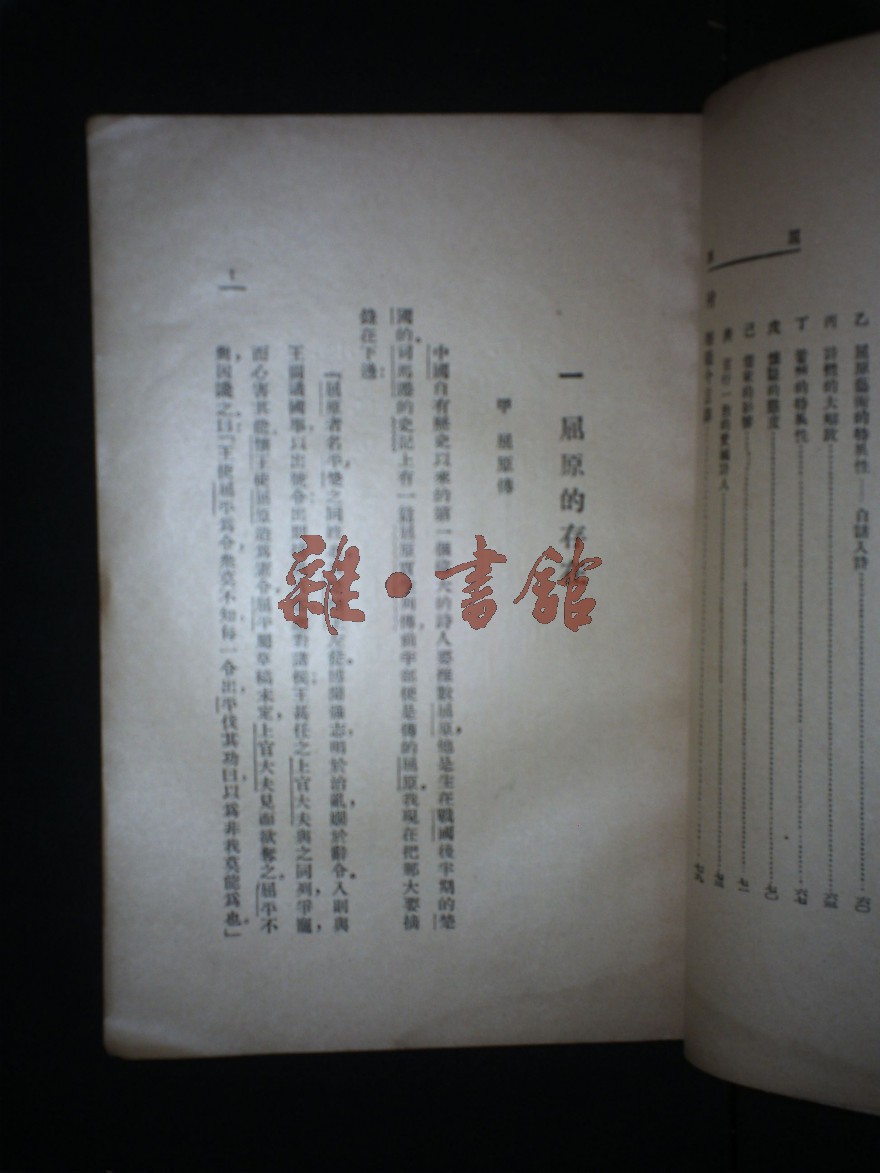 屈
原
乙 屈原藝術的特異性——自鑄入詩
丙 詩體的大解放
丁 當時的特異性
戊 懷疑的態度
己 儒家的影響
庚 言行一致的愛國詩人
附
一 屈原的存在
甲 屈原傳
中國自有歷史以來的第一個偉大的詩人要推數屈原他是生在戰國後半期的楚
國的司馬遷的史記上有一篇屈原賈生列傳前半部便是傳的屈原我現在把那大要摘
錄在下邊
『屈原者名平楚之同姓也 博聞強志明於治亂嫺於辭令入則與
王圖議國事以出號令出則 對諸侯王甚任之上官大夫與之同列爭寵
而心害其能懷王使屈原造為憲令屈平屬草稿未定上官大夫見而欲奪之屈平不
與因讒之曰「王使屈平為令衆莫不知每一令出平伐其功曰只為非我莫能為也」
1
雜·書館